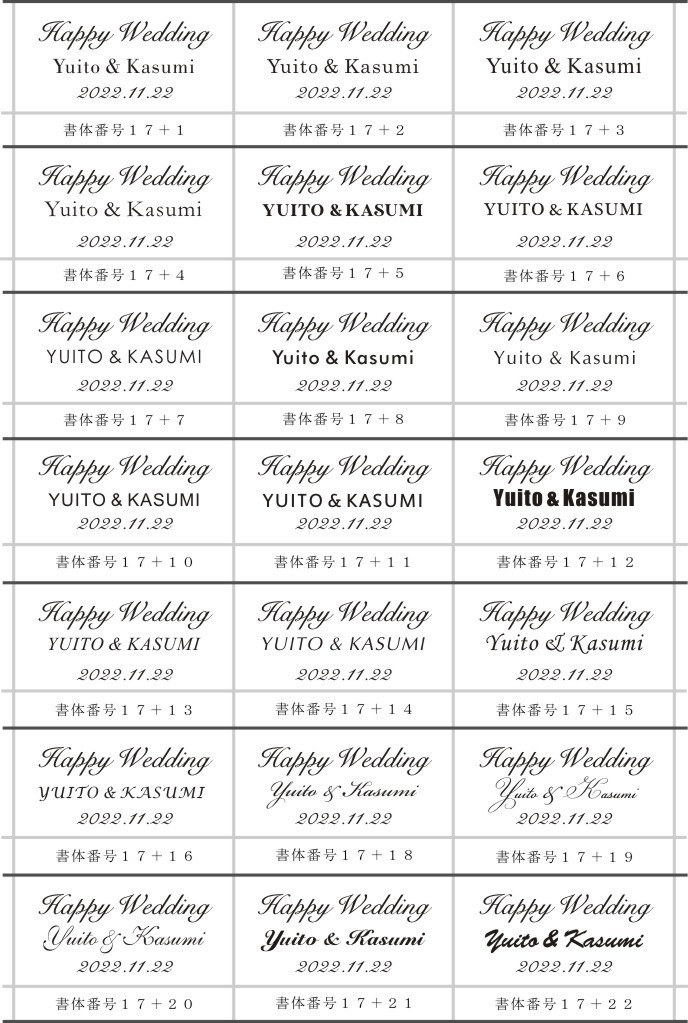 Happy Wedding
Yuito & Kasumi
2022.11.22
書体番号１７＋１
Happy Wedding
Yuito & Kasumi
2022.11.22
書体番号１７＋２
Happy Wedding
Yuito & Kasumi
2022.11.22
書体番号１７＋３
Happy Wedding
Yuito & Kasumi
2022.11.22
書体番号１７＋４
Happy Wedding
YUITO & KASUMI
2022.11.22
書体番号１７＋５
Happy Wedding
YUITO & KASUMI
2022.11.22
書体番号１７＋６
Happy Wedding
YUITO & KASUMI
2022.11.22
書体番号１７＋７
Happy Wedding
Yuito & Kasumi
2022.11.22
書体番号１７＋８
Happy Wedding
Yuito & Kasumi
2022.11.22
書体番号１７＋９
Happy Wedding
YUITO & KASUMI
2022.11.22
書体番号１７＋１０
Happy Wedding
YUITO & KASUMI
2022.11.22
書体番号１７＋１１
Happy Wedding
Yuito & Kasumi
2022.11.22
書体番号１７＋１２
Happy Wedding
YUITO & KASUMI
2022.11.22
書体番号１７＋１３
Happy Wedding
YUITO & KASUMI
2022.11.22
書体番号１７＋１４
Happy Wedding
Yuito & Kasumi
2022.11.22
書体番号１７＋１５
Happy Wedding
YUITO & KASUMI
2022.11.22
書体番号１７＋１６
Happy Wedding
Yuito & Kasumi
2022.11.22
書体番号１７＋１８
Happy Wedding
Yuito & Kasumi
2022.11.22
書体番号１７＋１９
Happy Wedding
Yuito & Kasumi
2022.11.22
書体番号１７＋２０
Happy Wedding
Yuito & Kasumi
2022.11.22
書体番号１７＋２１
Happy Wedding
Yuito & Kasumi
2022.11.22
書体番号１７＋２２